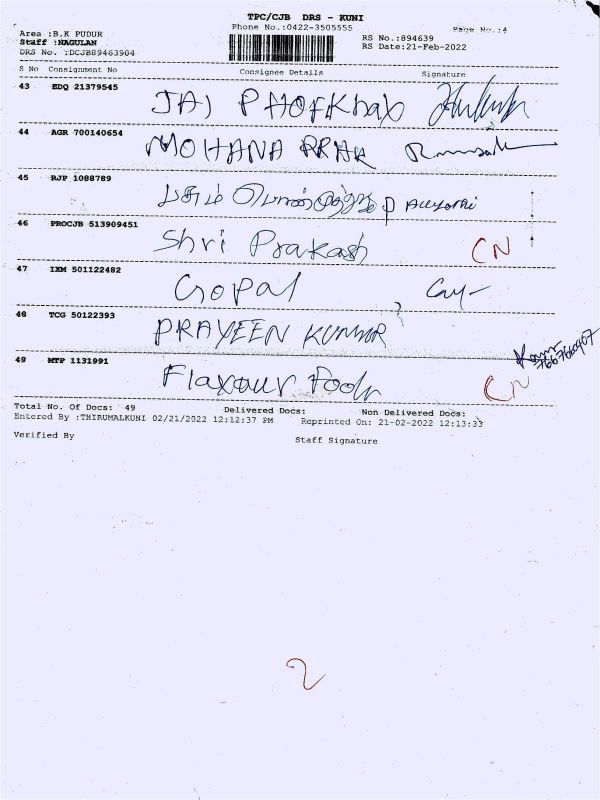 TPC/CJB DRS - KUNI
Phone No.:0422-3505555 Page No.:4
Area :B.K PUDUR
Staff :NAGULAN RS No.:894639
DRS No. :DCJB89463904 RS Date:21-Feb-2022
S No Consignment No Consignee Details Signature
43 EDQ 21379545 JAI
44 AGR 700140654 MOHANA
45 RJP 1088789
46 PROCJB 513909451 Shri Prakash CN
47 IXM 501122482 Gopal
48 TCG 50122393 PRAVEEN KUMAR
49 MTP 1131991 CN
Total No. Of Docs: 49 Delivered Docs: Non Delivered Docs:
Entered By :THIRUMALKUNI 02/21/2022 12:12:37 PM Reprinted On: 21-02-2022 12:13:33
Verified By Staff Signature
2